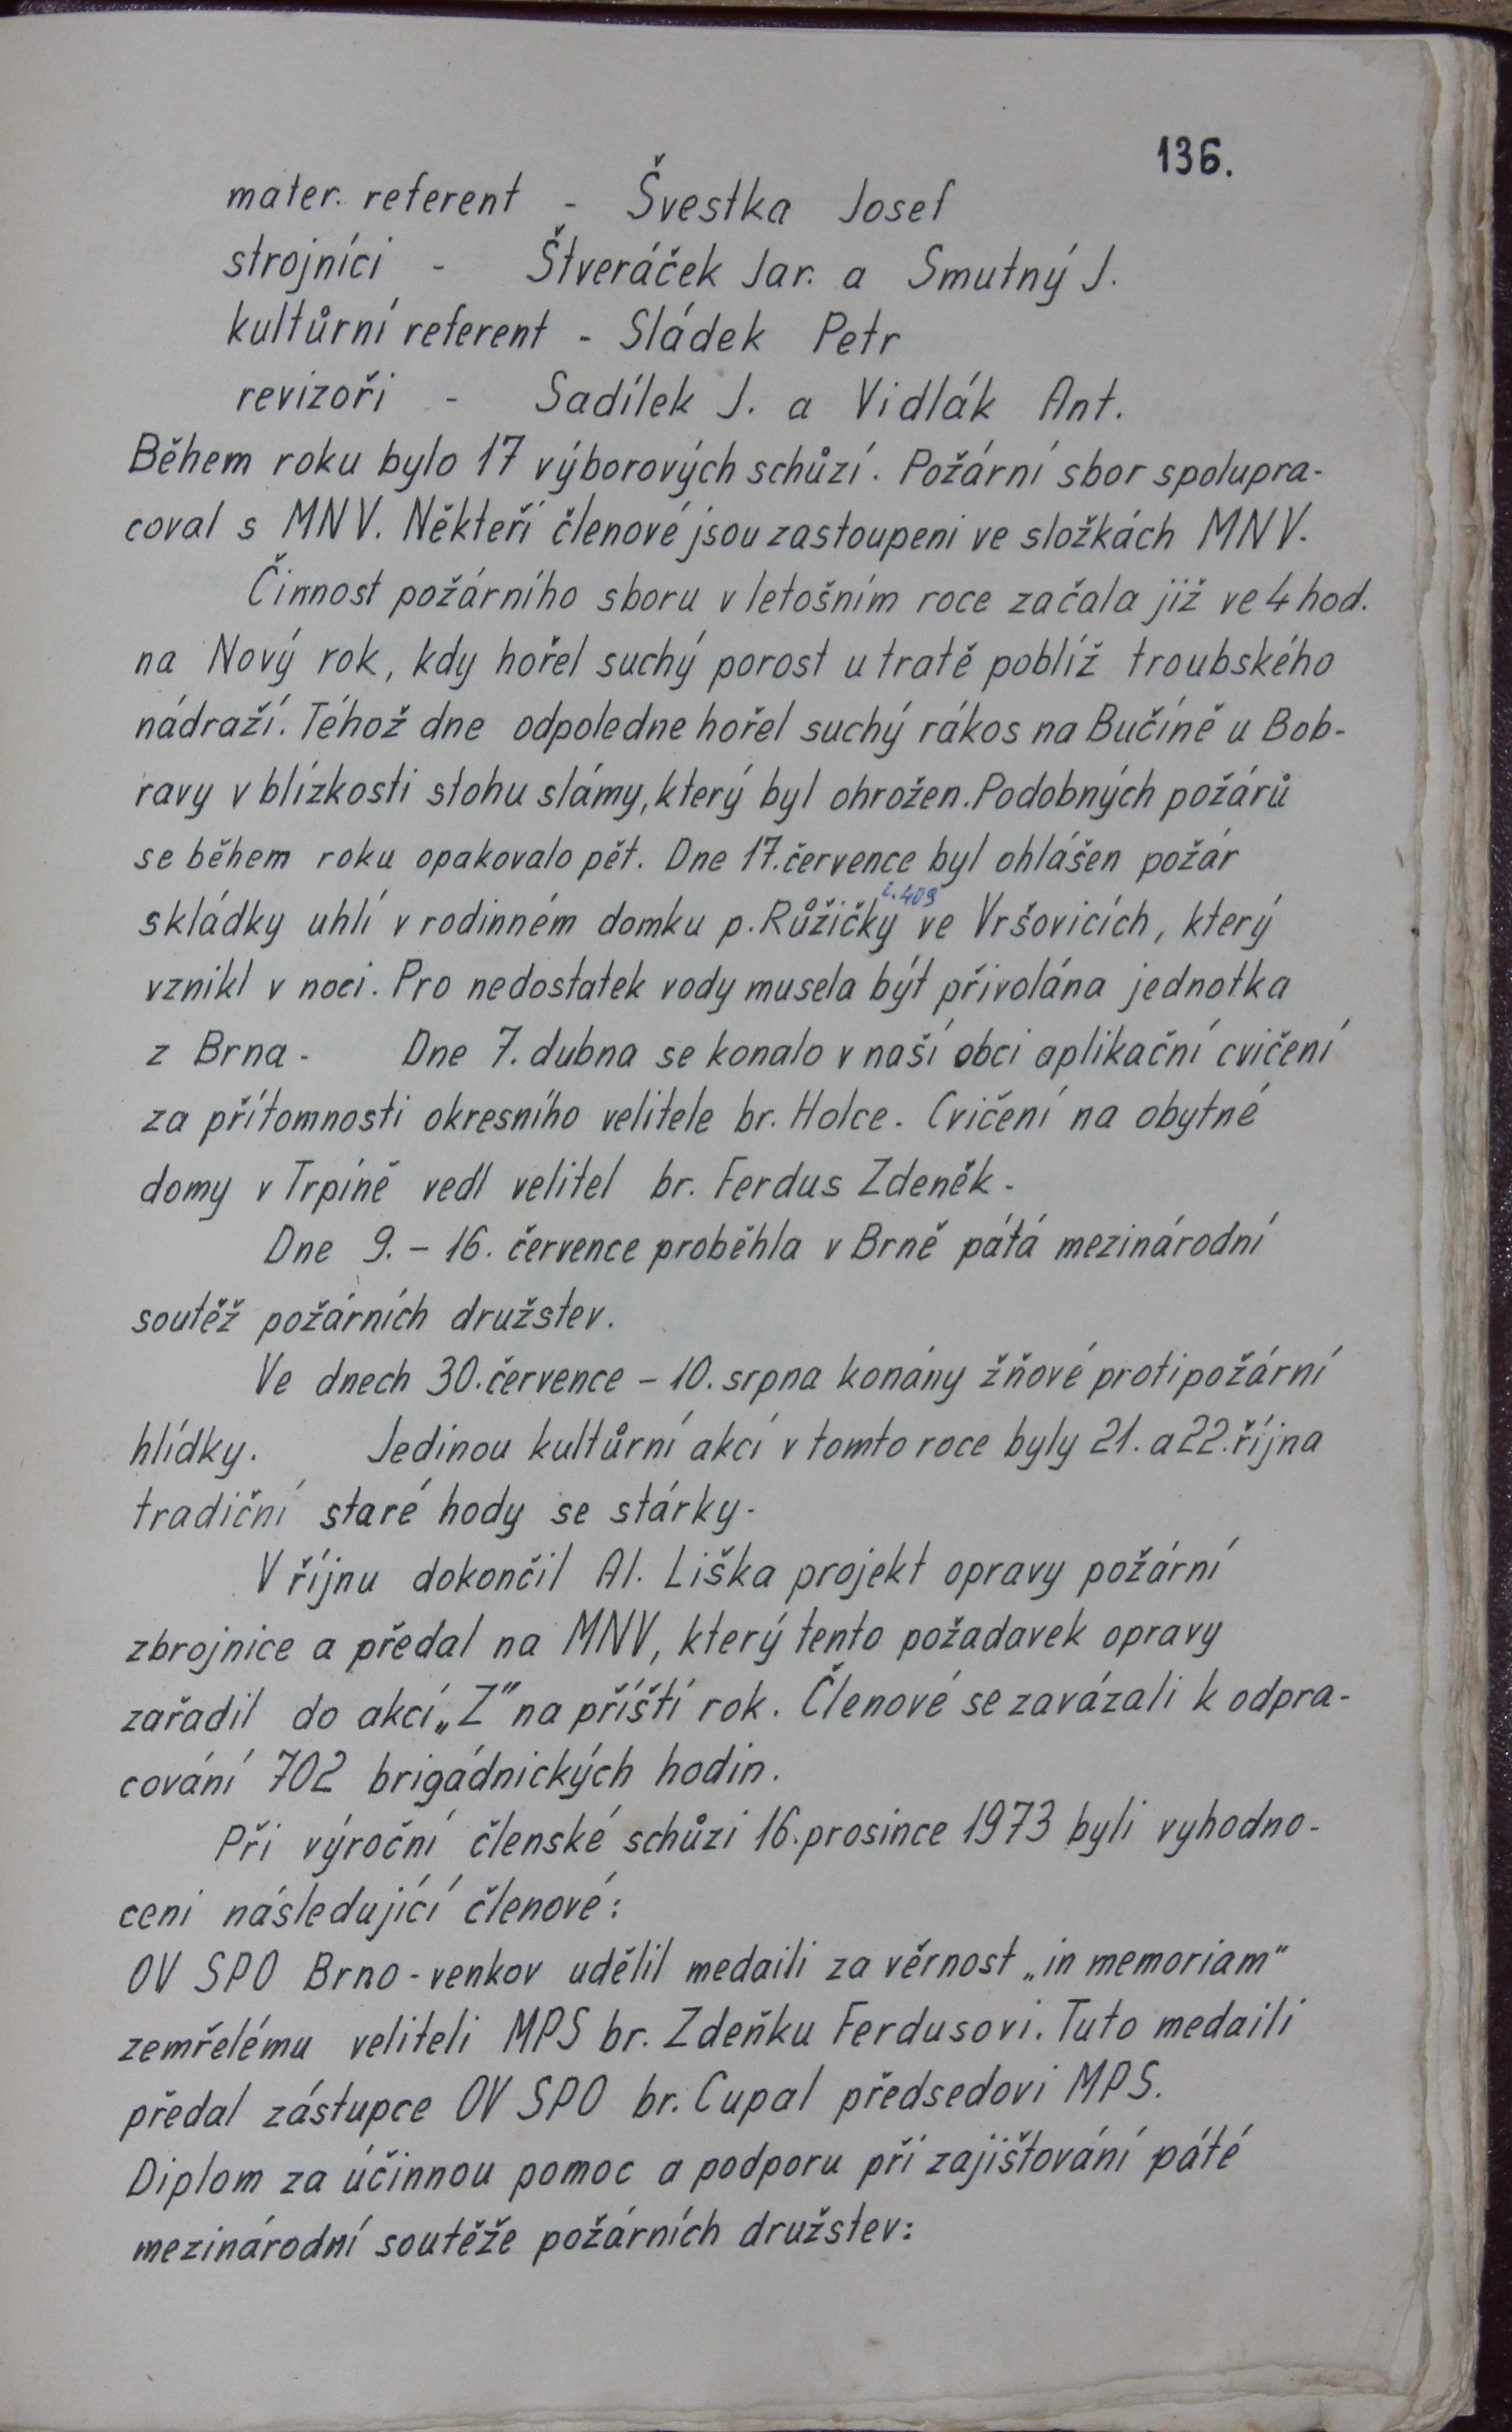 136.
mater. referent - Švestka Josef
strojníci - Štveráček Jar. a Smutný J.
kultůrní referent - Sládek Petr
revizoři - Sadílek J. a Vidlák Ant.
Během roku bylo 17 výborových schůzí. Požární sbor spolupra-
coval s MNV. Někteří členové jsou zastoupeni ve složkách MNV.
Činnost požárního sboru v letošním roce začala již ve 4 hod.
na Nový rok, kdy hořel suchý porost u tratě poblíž troubského
nádraží. Téhož dne odpoledne hořel suchý rákos na Bučíně u Bob-
ravy v blízkosti stohu slámy, který byl ohrožen. Podobných požárů
se během roku opakovalo pět. Dne 17. července byl ohlášen požár
č. 409
skládky uhlí v rodinném domku p. Růžičky ve Vršovicích, který
vznikl v noci. Pro nedostatek vody musela být přivolána jednotka
z Brna. Dne 7. dubna se konalo v naší obci aplikační cvičení
za přítomnosti okresního velitele br. Holce. Cvičení na obytné
domy v Trpíně vedl velitel br. Ferdus Zdeněk.
Dne 9. - 16. července proběhla v Brně pátá mezinárodní
soutěž požárních družstev.
Ve dnech 30. července - 10. srpna konány žňové protipožární
hlídky. Jedinou kultůrní akcí v tomto roce byly 21. a 22. října
tradiční staré hody se stárky.
V říjnu dokončil Al. Liška projekt opravy požární
zbrojnice a předal na MNV, který tento požadavek opravy
zařadil do akcí „Z" na příští rok. Členové se zavázali k odpra-
cování 702 brigádnických hodin.
Při výroční členské schůzi 16. prosince 1973 byli vyhodno-
ceni následující členové:
OV SPO Brno - venkov udělil medaili za věrnost „in memoriam"
zemřelému veliteli MPS br. Zdeňku Ferdusovi. Tuto medaili
předal zástupce OV SPO br. Cupal předsedovi MPS.
Diplom za účinnou pomoc a podporu při zajišťování páté
mezinárodní soutěže požárních družstev: